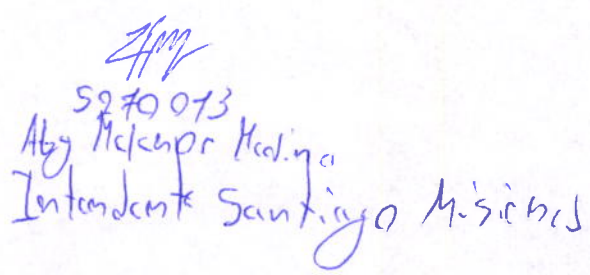 5270013
Abg Melanor Medina
Intendente Santiago Misiones